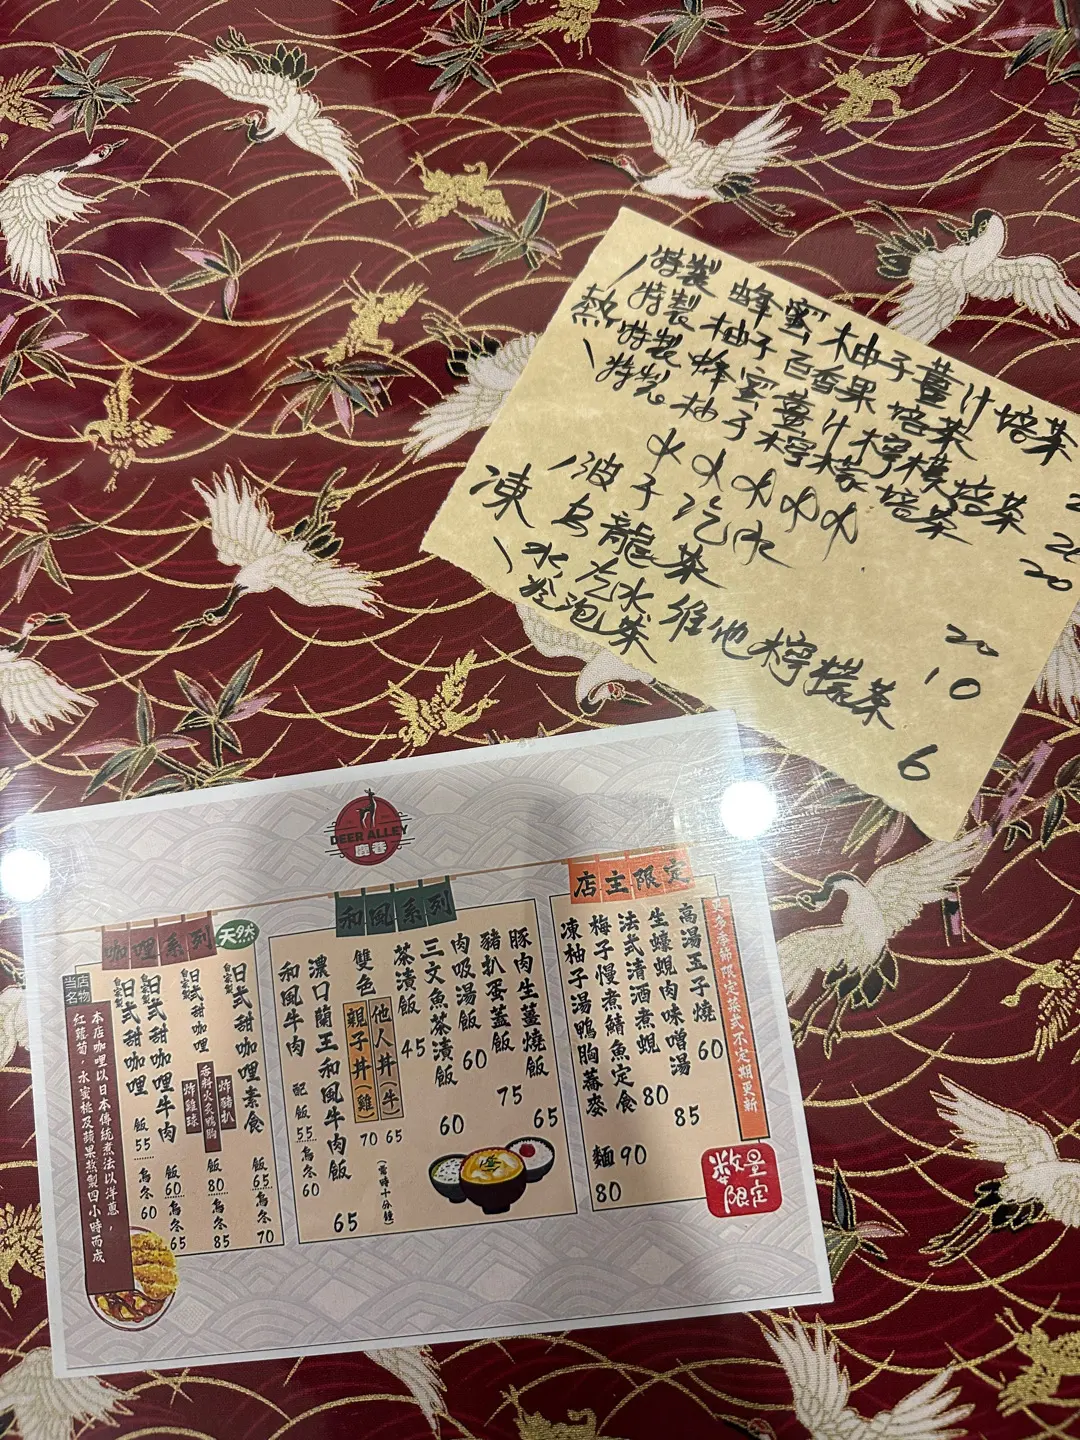 特製 蜂蜜柚子薑汁焙茶
特製 柚子百香果焙茶
熱
特製 蜂蜜薑汁檸檬焙茶
特製 柚子檸檬焙茶
20
波子汽水
凍
烏龍茶
汽水 維他檸檬茶
冷泡茶
20
10
6
DEER ALLEY
鹿巷
店主限定
更多季節限定菜式不定期更新
高湯玉子燒 60
生蠔蜆肉味噌湯 85
法式清酒煮蜆 80
梅子慢煮鯖魚定食 90
凍柚子湯鴨胸蕎麥麵 80
數量限定
和風系列
豚肉生薑燒飯 65
豬扒蛋蓋飯 75
肉吸湯飯 60
三文魚茶漬飯 60
茶漬飯 45
雙色
他人丼(牛) 65
親子丼(雞) 70
(需時十分鐘)
濃口蘭王和風牛肉飯 65
和風牛肉 配飯55 烏冬60
咖哩系列
天然
日式甜咖哩素食 飯65 烏冬70
日式甜咖哩
炸豬扒
香料火炙鴨胸 飯80 烏冬85
炸雞球 飯60 烏冬65
日式甜咖哩牛肉
日式甜咖哩 飯55 烏冬60
當店名物
本店咖哩以日本傳統煮法以洋蔥,
紅蘿蔔,水蜜桃及蘋果熬製四小時而成